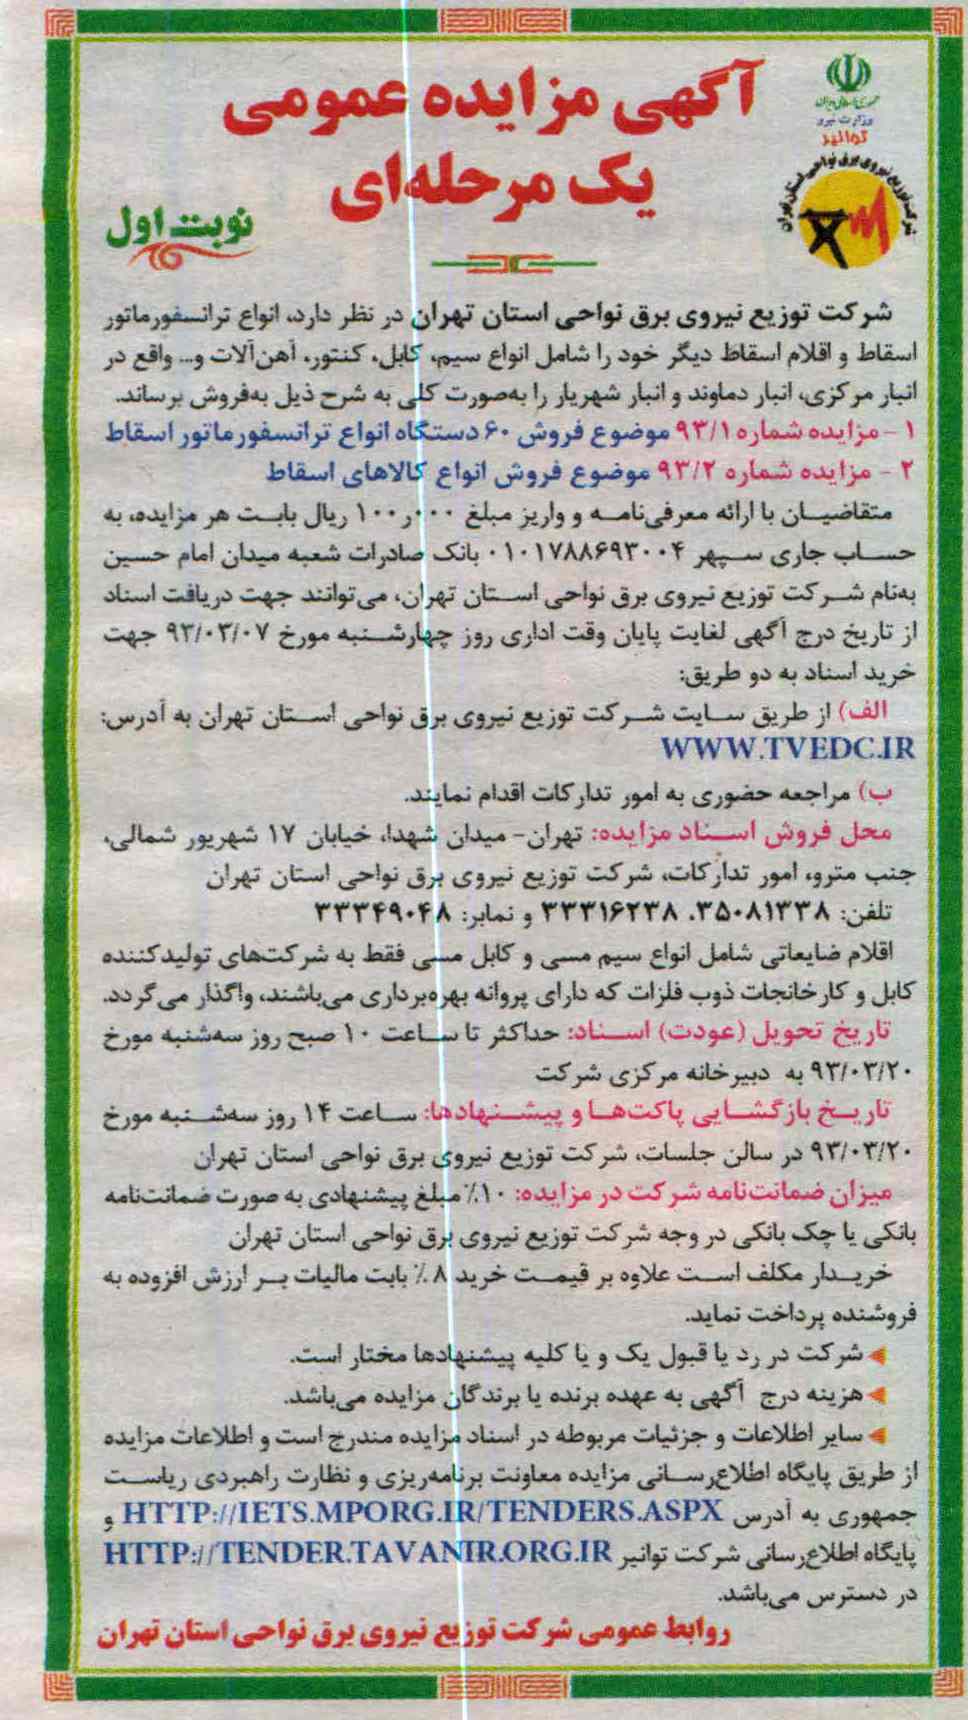 جمهوری اسلامی ایران
وزارت نیرو
توانیر
شرکت توزیع نیروی برق نواحی استان تهران
آگهی مزایده عمومی
یک مرحله‌ای
نوبت اول
شرکت توزیع نیروی برق نواحی استان تهران در نظر دارد، انواع ترانسفورماتور
اسقاط و اقلام اسقاط دیگر خود را شامل انواع سیم، کابل، کنتور، آهن‌آلات و... واقع در
انبار مرکزی، انبار دماوند و انبار شهریار را به‌صورت کلی به شرح ذیل به‌فروش برساند.
۱ - مزایده شماره ۹۳/۱ موضوع فروش ۶۰ دستگاه انواع ترانسفورماتور اسقاط
۲ - مزایده شماره ۹۳/۲ موضوع فروش انواع کالاهای اسقاط
متقاضیان با ارائه معرفی‌نامه و واریز مبلغ ۱۰۰٫۰۰۰ ریال بابت هر مزایده، به
حساب جاری سپهر ۰۱۰۱۷۸۸۶۹۳۰۰۴ بانک صادرات شعبه میدان امام حسین
به‌نام شرکت توزیع نیروی برق نواحی استان تهران، می‌توانند جهت دریافت اسناد
از تاریخ درج آگهی لغایت پایان وقت اداری روز چهارشنبه مورخ ۹۳/۰۳/۰۷ جهت
خرید اسناد به دو طریق:
الف) از طریق سایت شرکت توزیع نیروی برق نواحی استان تهران به آدرس:
WWW.TVEDC.IR
ب) مراجعه حضوری به امور تدارکات اقدام نمایند.
محل فروش اسناد مزایده: تهران- میدان شهدا، خیابان ۱۷ شهریور شمالی،
جنب مترو، امور تدارکات، شرکت توزیع نیروی برق نواحی استان تهران
تلفن: ۳۵۰۸۱۳۳۸، ۳۳۳۱۶۲۳۸ و نمابر: ۳۳۳۴۹۰۴۸
اقلام ضایعاتی شامل انواع سیم مسی و کابل مسی فقط به شرکت‌های تولیدکننده
کابل و کارخانجات ذوب فلزات که دارای پروانه بهره‌برداری می‌باشند، واگذار می‌گردد.
تاریخ تحویل (عودت) اسناد: حداکثر تا ساعت ۱۰ صبح روز سه‌شنبه مورخ
۹۳/۰۳/۲۰ به دبیرخانه مرکزی شرکت
تاریخ بازگشایی پاکت‌ها و پیشنهادها: ساعت ۱۴ روز سه‌شنبه مورخ
۹۳/۰۳/۲۰ در سالن جلسات، شرکت توزیع نیروی برق نواحی استان تهران
میزان ضمانت‌نامه شرکت در مزایده: ۱۰٪ مبلغ پیشنهادی به صورت ضمانت‌نامه
بانکی یا چک بانکی در وجه شرکت توزیع نیروی برق نواحی استان تهران
خریدار مکلف است علاوه بر قیمت خرید ۸٪ بابت مالیات بر ارزش افزوده به
فروشنده پرداخت نماید.
شرکت در رد یا قبول یک و یا کلیه پیشنهادها مختار است.
هزینه درج آگهی به عهده برنده یا برندگان مزایده می‌باشد.
سایر اطلاعات و جزئیات مربوطه در اسناد مزایده مندرج است و اطلاعات مزایده
از طریق پایگاه اطلاع‌رسانی مزایده معاونت برنامه‌ریزی و نظارت راهبردی ریاست
جمهوری به آدرس HTTP://IETS.MPORG.IR/TENDERS.ASPX و
پایگاه اطلاع‌رسانی شرکت توانیر HTTP://TENDER.TAVANIR.ORG.IR
در دسترس می‌باشد.
روابط عمومی شرکت توزیع نیروی برق نواحی استان تهران